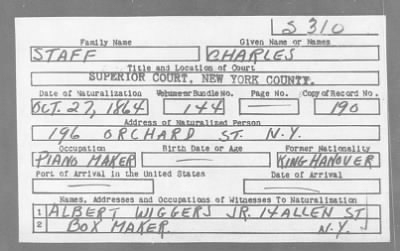 S 310
Family Name Given Name or Names
STAFF CHARLES
Title and Location of Court
SUPERIOR COURT, NEW YORK COUNTY.
Date of Naturalization Volume or Bundle No. Page No. Copy of Record No.
OCT. 27, 1864 144 — 190
Address of Naturalized Person
196 ORCHARD ST. N.Y.
Occupation Birth Date or Age Former Nationality
PIANO MAKER — KING HANOVER
Port of Arrival in the United States Date of Arrival
— —
Names, Addresses and Occupations of Witnesses To Naturalization
1 ALBERT WIGGERS JR. 14 ALLEN ST
2 BOX MAKER. N.Y.